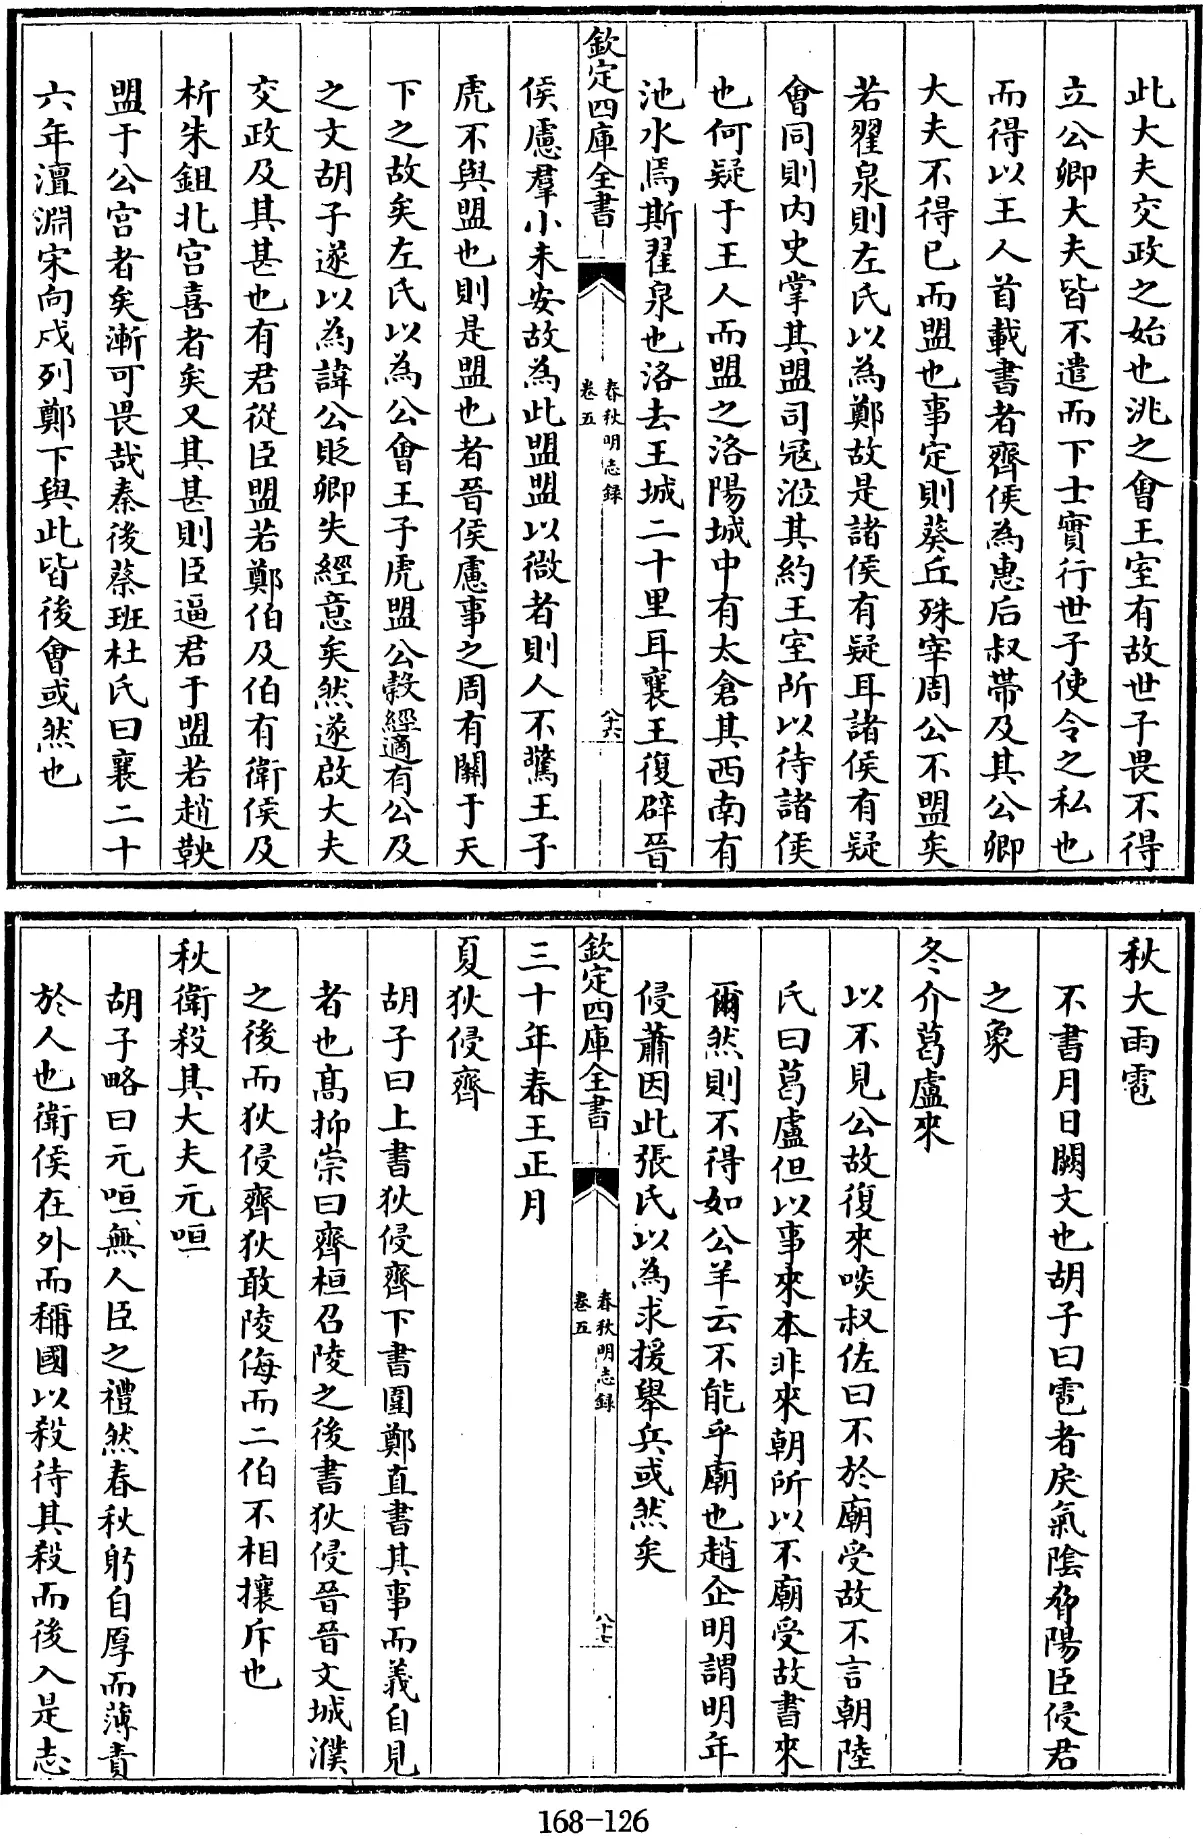 此大夫交政之始也洮之會王室有故世子畏不得
立公卿大夫皆不遣而下士實行世子使令之私也
而得以王人首載書者齊侯為惠后叔帶及其公卿
大夫不得已而盟也事定則葵丘殊宰周公不盟矣
若翟泉則左氏以為鄭故是諸侯有疑耳諸侯有疑
會同則內史掌其盟司冦涖其約王室所以待諸侯
也何疑于王人而盟之洛陽城中有太倉其西南有
池水焉斯翟泉也洛去王城二十里耳襄王復辟晉
欽定四庫全書
春秋明志録
卷五
八十六
侯慮羣小未安故為此盟盟以微者則人不驚王子
虎不與盟也則是盟也者晉侯慮事之周有關于天
下之故矣左氏以為公會王子虎盟公穀經適有公及
之文胡子遂以為諱公貶卿失經意矣然遂啟大夫
交政及其甚也有君從臣盟若鄭伯及伯有衛侯及
析朱鉏北宮喜者矣又其甚則臣逼君于盟若趙鞅
盟于公宮者矣漸可畏哉秦後蔡班杜氏曰襄二十
六年澶淵宋向戌列鄭下與此皆後會或然也
秋大雨雹
不書月日闕文也胡子曰雹者戾氣陰脅陽臣侵君
之象
冬介葛盧來
以不見公故復來啖叔佐曰不於廟受故不言朝陸
氏曰葛盧但以事來本非來朝所以不廟受故書來
爾然則不得如公羊云不能乎廟也趙企明謂明年
侵蕭因此張氏以為求援舉兵或然矣
欽定四庫全書
春秋明志録
卷五
八十七
三十年春王正月
夏狄侵齊
胡子曰上書狄侵齊下書圍鄭直書其事而義自見
者也高抑崇曰齊桓召陵之後書狄侵晉晉文城濮
之後而狄侵齊狄敢陵侮而二伯不相攘斥也
秋衛殺其大夫元咺
胡子略曰元咺無人臣之禮然春秋躬自厚而薄責
於人也衛侯在外而稱國以殺待其殺而後入是志
168-126